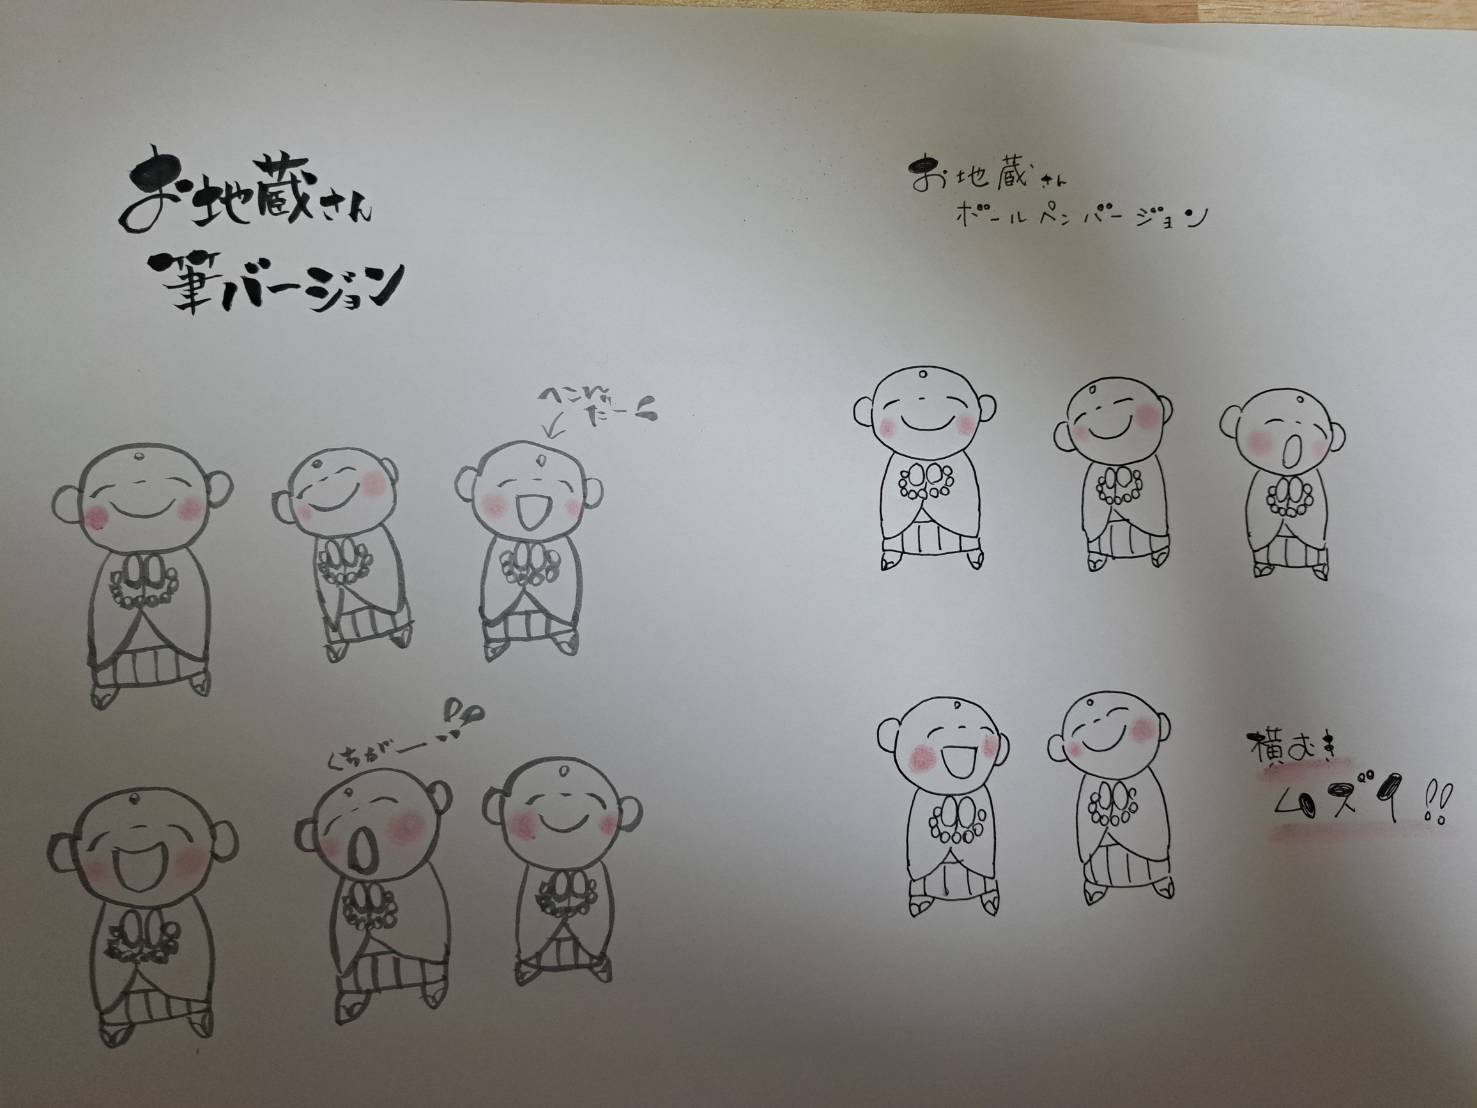 お地蔵さん
筆バージョン
お地蔵さん
ボールペンバージョン
くちがー
横むき
ムズイ!!